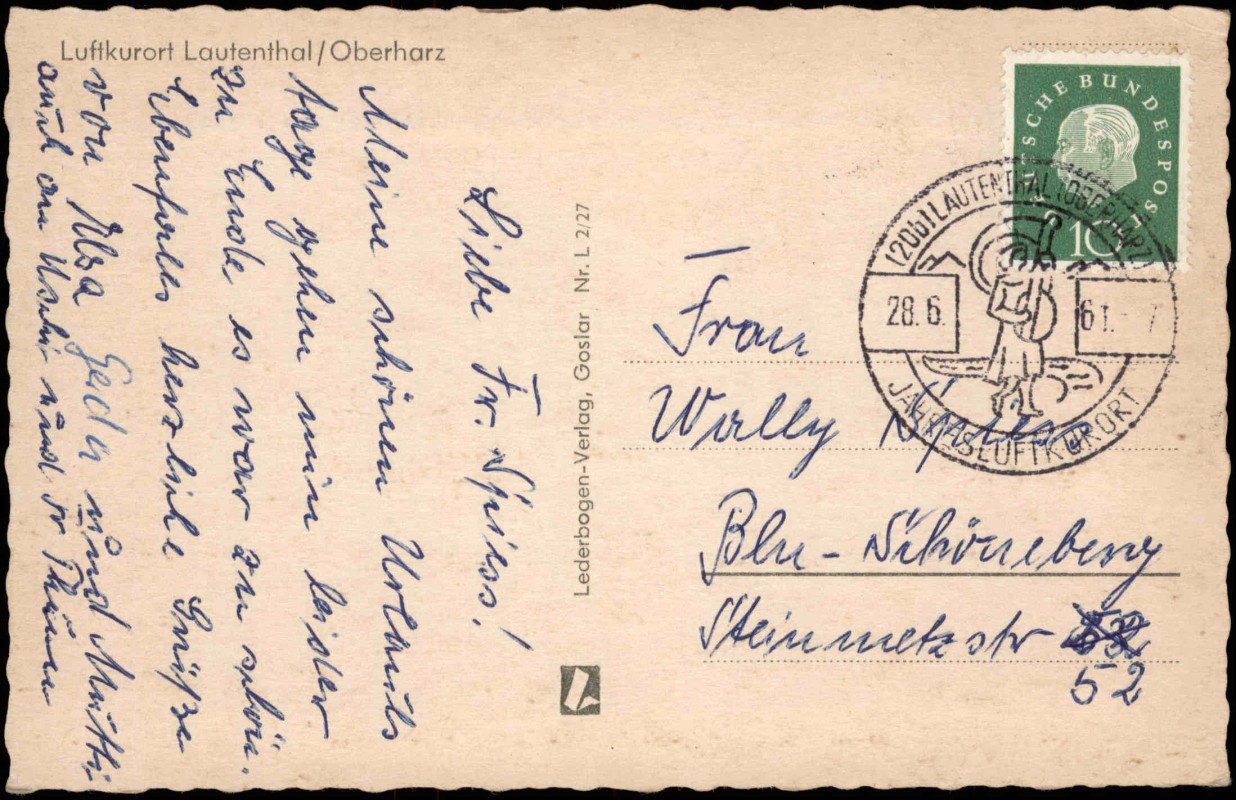 Luftkurort Lautenthal/Oberharz
Liebe Fr. Spiess!
Meine schönen Urlaubs
tage gehen nun leider
zu Ende es war zu schön.
Ebenfalls herzliche Grüße
von Ilsa Gedu und Mutti
auch an Uschi und Fr Thum
Lederbogen-Verlag, Goslar Nr. L 2/27
DEUTSCHE BUNDESPOST
10
(20b) LAUTENTHAL (OBERHARZ)
28.6.
61.-7
JAHRESLUFTKURORT
Frau
Wally Spiess
Bln-Schöneberg
Steinmetzstr
52